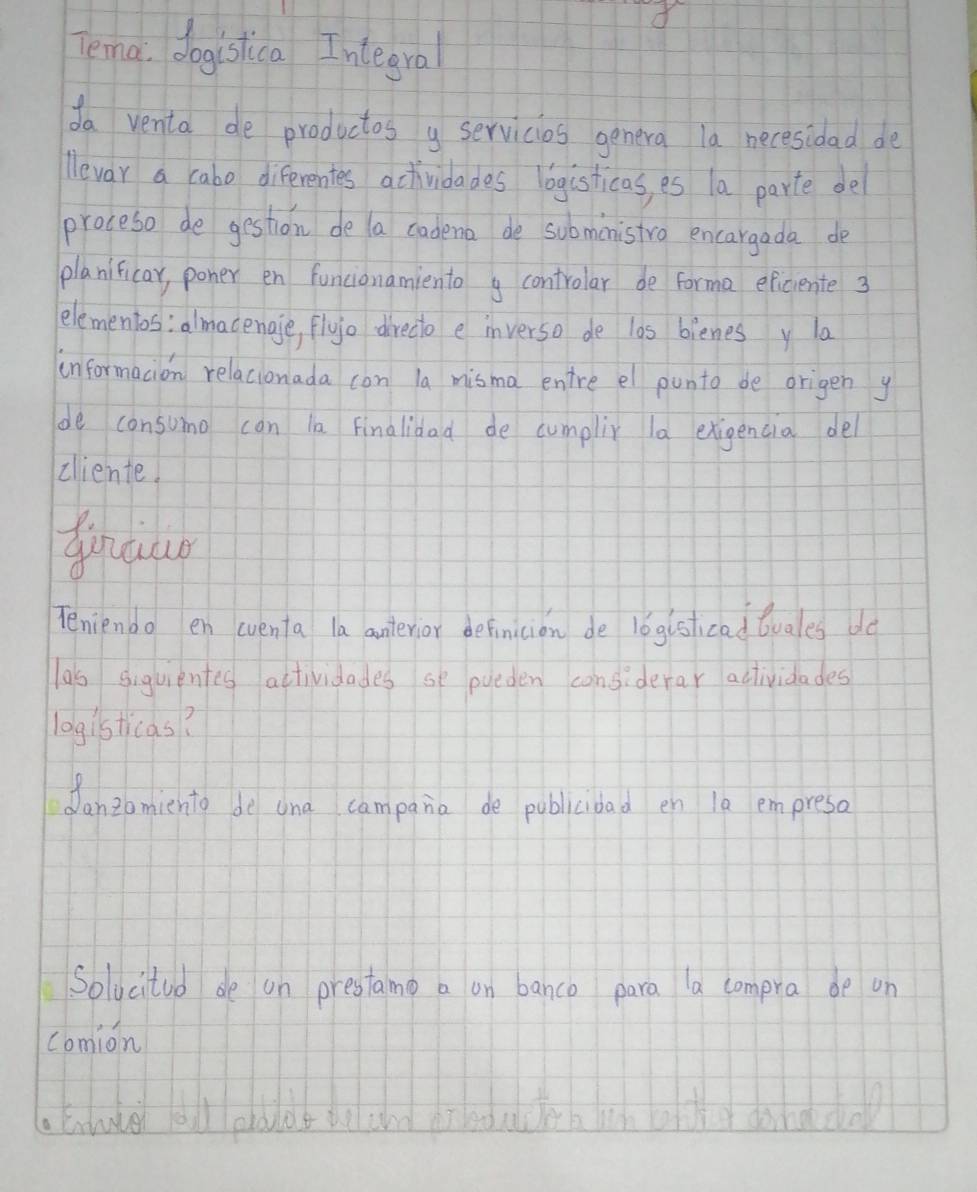 Tema: Logistica Integral
La venta de productos y servicios genera la necesidad de
llevar a cabo diferentes actividades lógisticas, es la parte del
proceso de gestión de la cadena de subministro encargada de
planificar, poner en funcionamiento y controlar de forma eficiente 3
elementos: almacenaje, Flujo directo e inverso de los bienes y la
información relacionada con la misma entre el punto de origen y
de consumo con la finalidad de cumplir la exigencia del
cliente.
Teniendo en cuenta la anterior definición de lógistica ¿Cuales de
las siguientes actividades se pueden considerar actividades
logísticas?
Lanzamiento de una campaña de publicidad en la empresa
Solucitud de un prestamo a un banco para la compra de un
comión